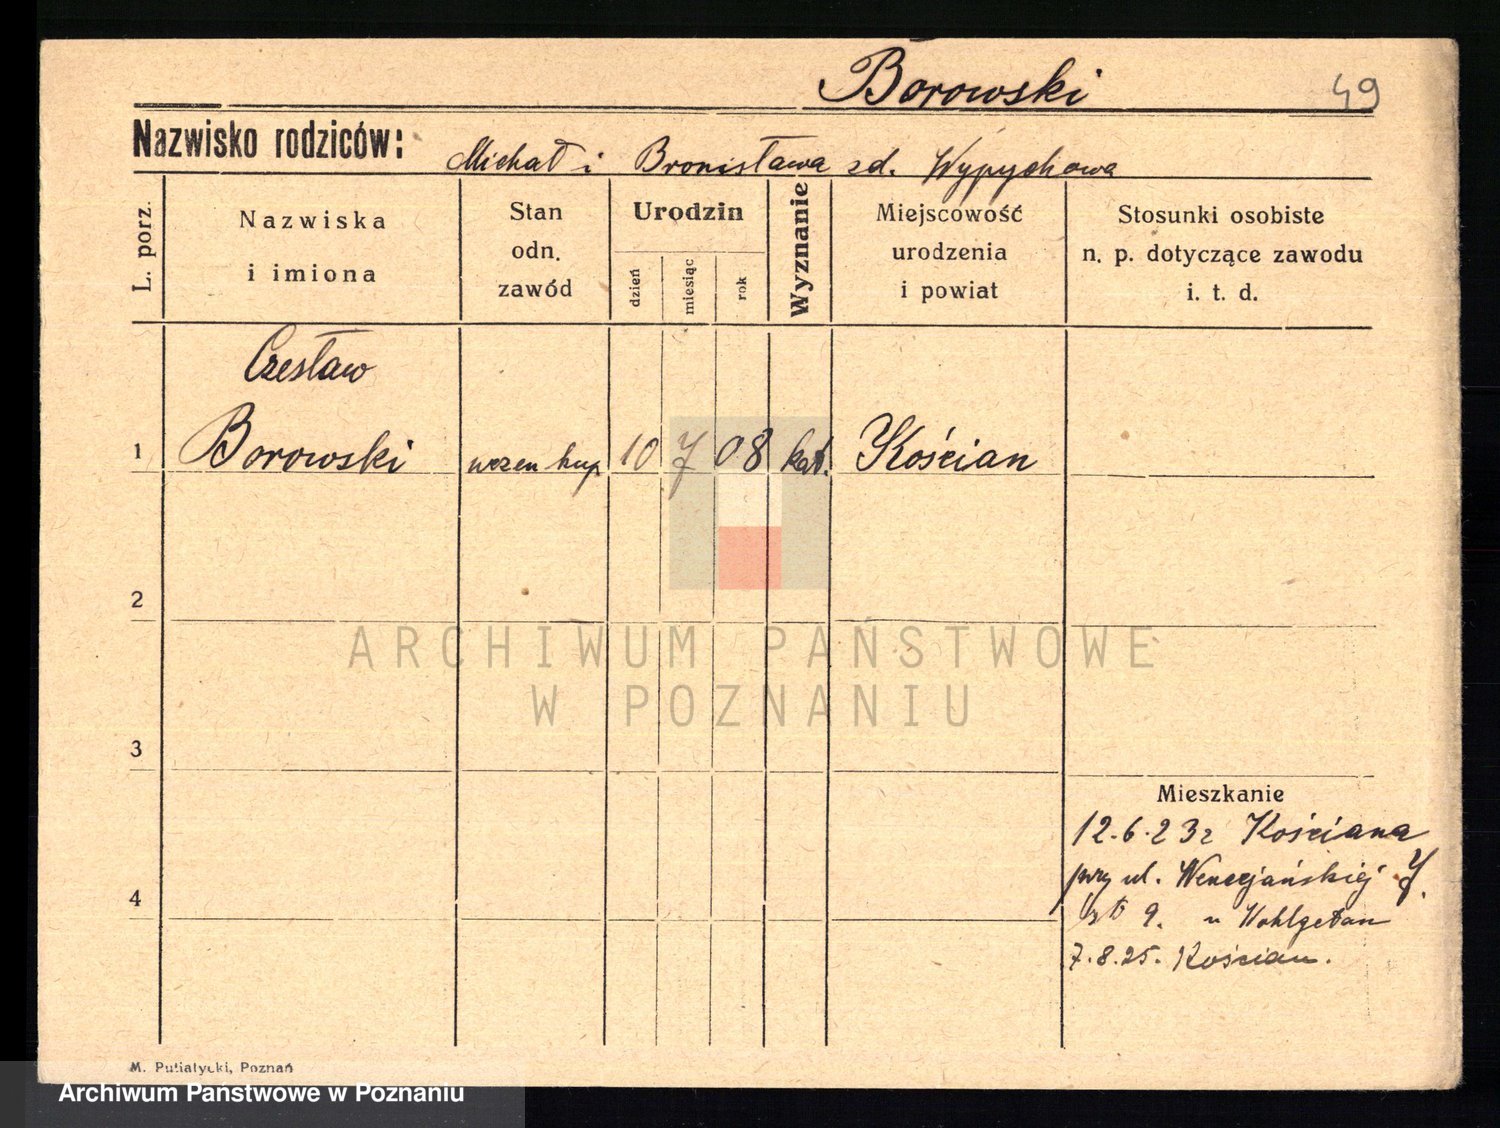 Borowski
49
Nazwisko rodziców: Michał i Bronisława zd. Wypychowa
L. porz.
Nazwiska
i imiona
Stan
odn.
zawód
Urodzin
dzień
miesiąc
rok
Wyznanie
Miejscowość
urodzenia
i powiat
Stosunki osobiste
n. p. dotyczące zawodu
i. t. d.
Czesław
1 Borowski uczen kup 10 7 08 kat. Kościan
2
ARCHIWUM PAŃSTWOWE
W POZNANIU
3
Mieszkanie
12.6.23 z Kościana
przy ul. Wenecjańskiej 7.
9. u Wohlgetan
7.8.25. Kościan.
4
M. Putiatycki, Poznań
Archiwum Państwowe w Poznaniu